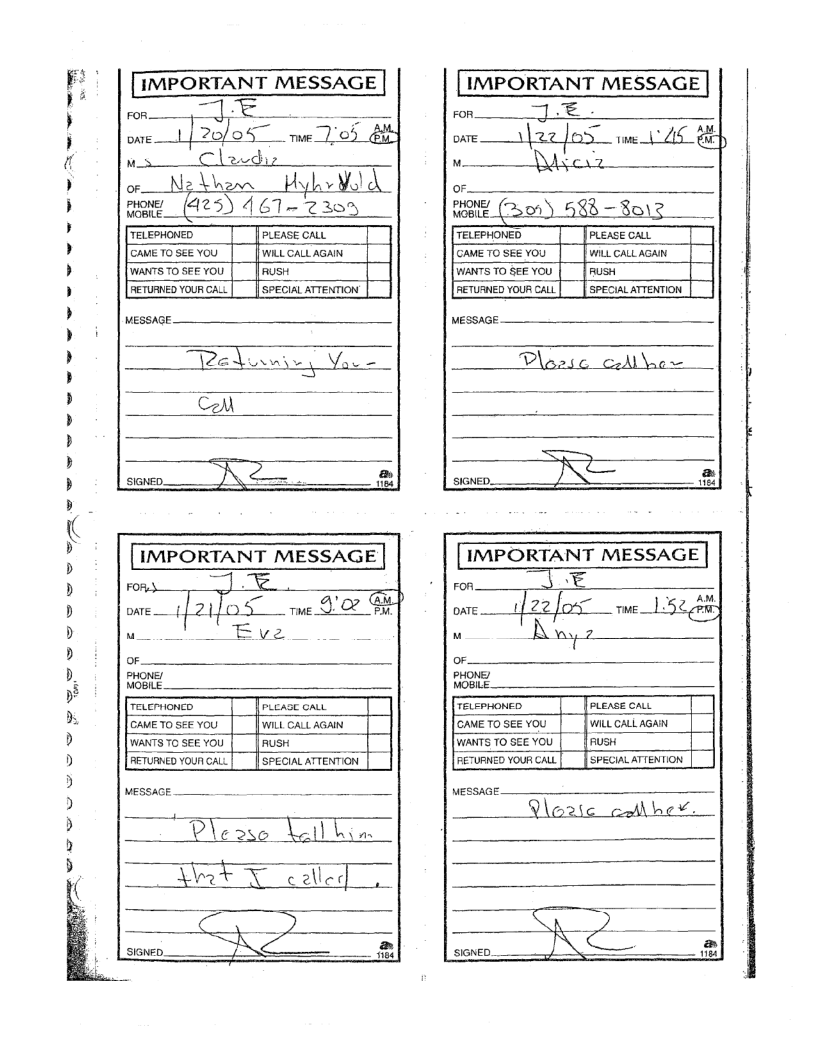 IMPORTANT MESSAGE
FOR J.E
DATE 1/20/05 TIME 7:05 A.M. P.M.
M S Claudia
OF Nathan Myhrvold
PHONE/ MOBILE (425) 467-2309
TELEPHONED PLEASE CALL
CAME TO SEE YOU WILL CALL AGAIN
WANTS TO SEE YOU RUSH
RETURNED YOUR CALL SPECIAL ATTENTION
MESSAGE
Returning Your
Call
SIGNED
1184
IMPORTANT MESSAGE
FOR J.E.
DATE 1/22/05 TIME 1:45 A.M. P.M.
M Alicia
OF
PHONE/ MOBILE (305) 588-8013
TELEPHONED PLEASE CALL
CAME TO SEE YOU WILL CALL AGAIN
WANTS TO SEE YOU RUSH
RETURNED YOUR CALL SPECIAL ATTENTION
MESSAGE
Please call her
SIGNED
1184
IMPORTANT MESSAGE
FOR J.E.
DATE 1/21/05 TIME 9:02 A.M. P.M.
M Eva
OF
PHONE/ MOBILE
TELEPHONED PLEASE CALL
CAME TO SEE YOU WILL CALL AGAIN
WANTS TO SEE YOU RUSH
RETURNED YOUR CALL SPECIAL ATTENTION
MESSAGE
Please tell him
that I called.
SIGNED
1184
IMPORTANT MESSAGE
FOR J.E
DATE 1/22/05 TIME 1:52 A.M. P.M.
M Anya
OF
PHONE/ MOBILE
TELEPHONED PLEASE CALL
CAME TO SEE YOU WILL CALL AGAIN
WANTS TO SEE YOU RUSH
RETURNED YOUR CALL SPECIAL ATTENTION
MESSAGE
Please call her.
SIGNED
1184